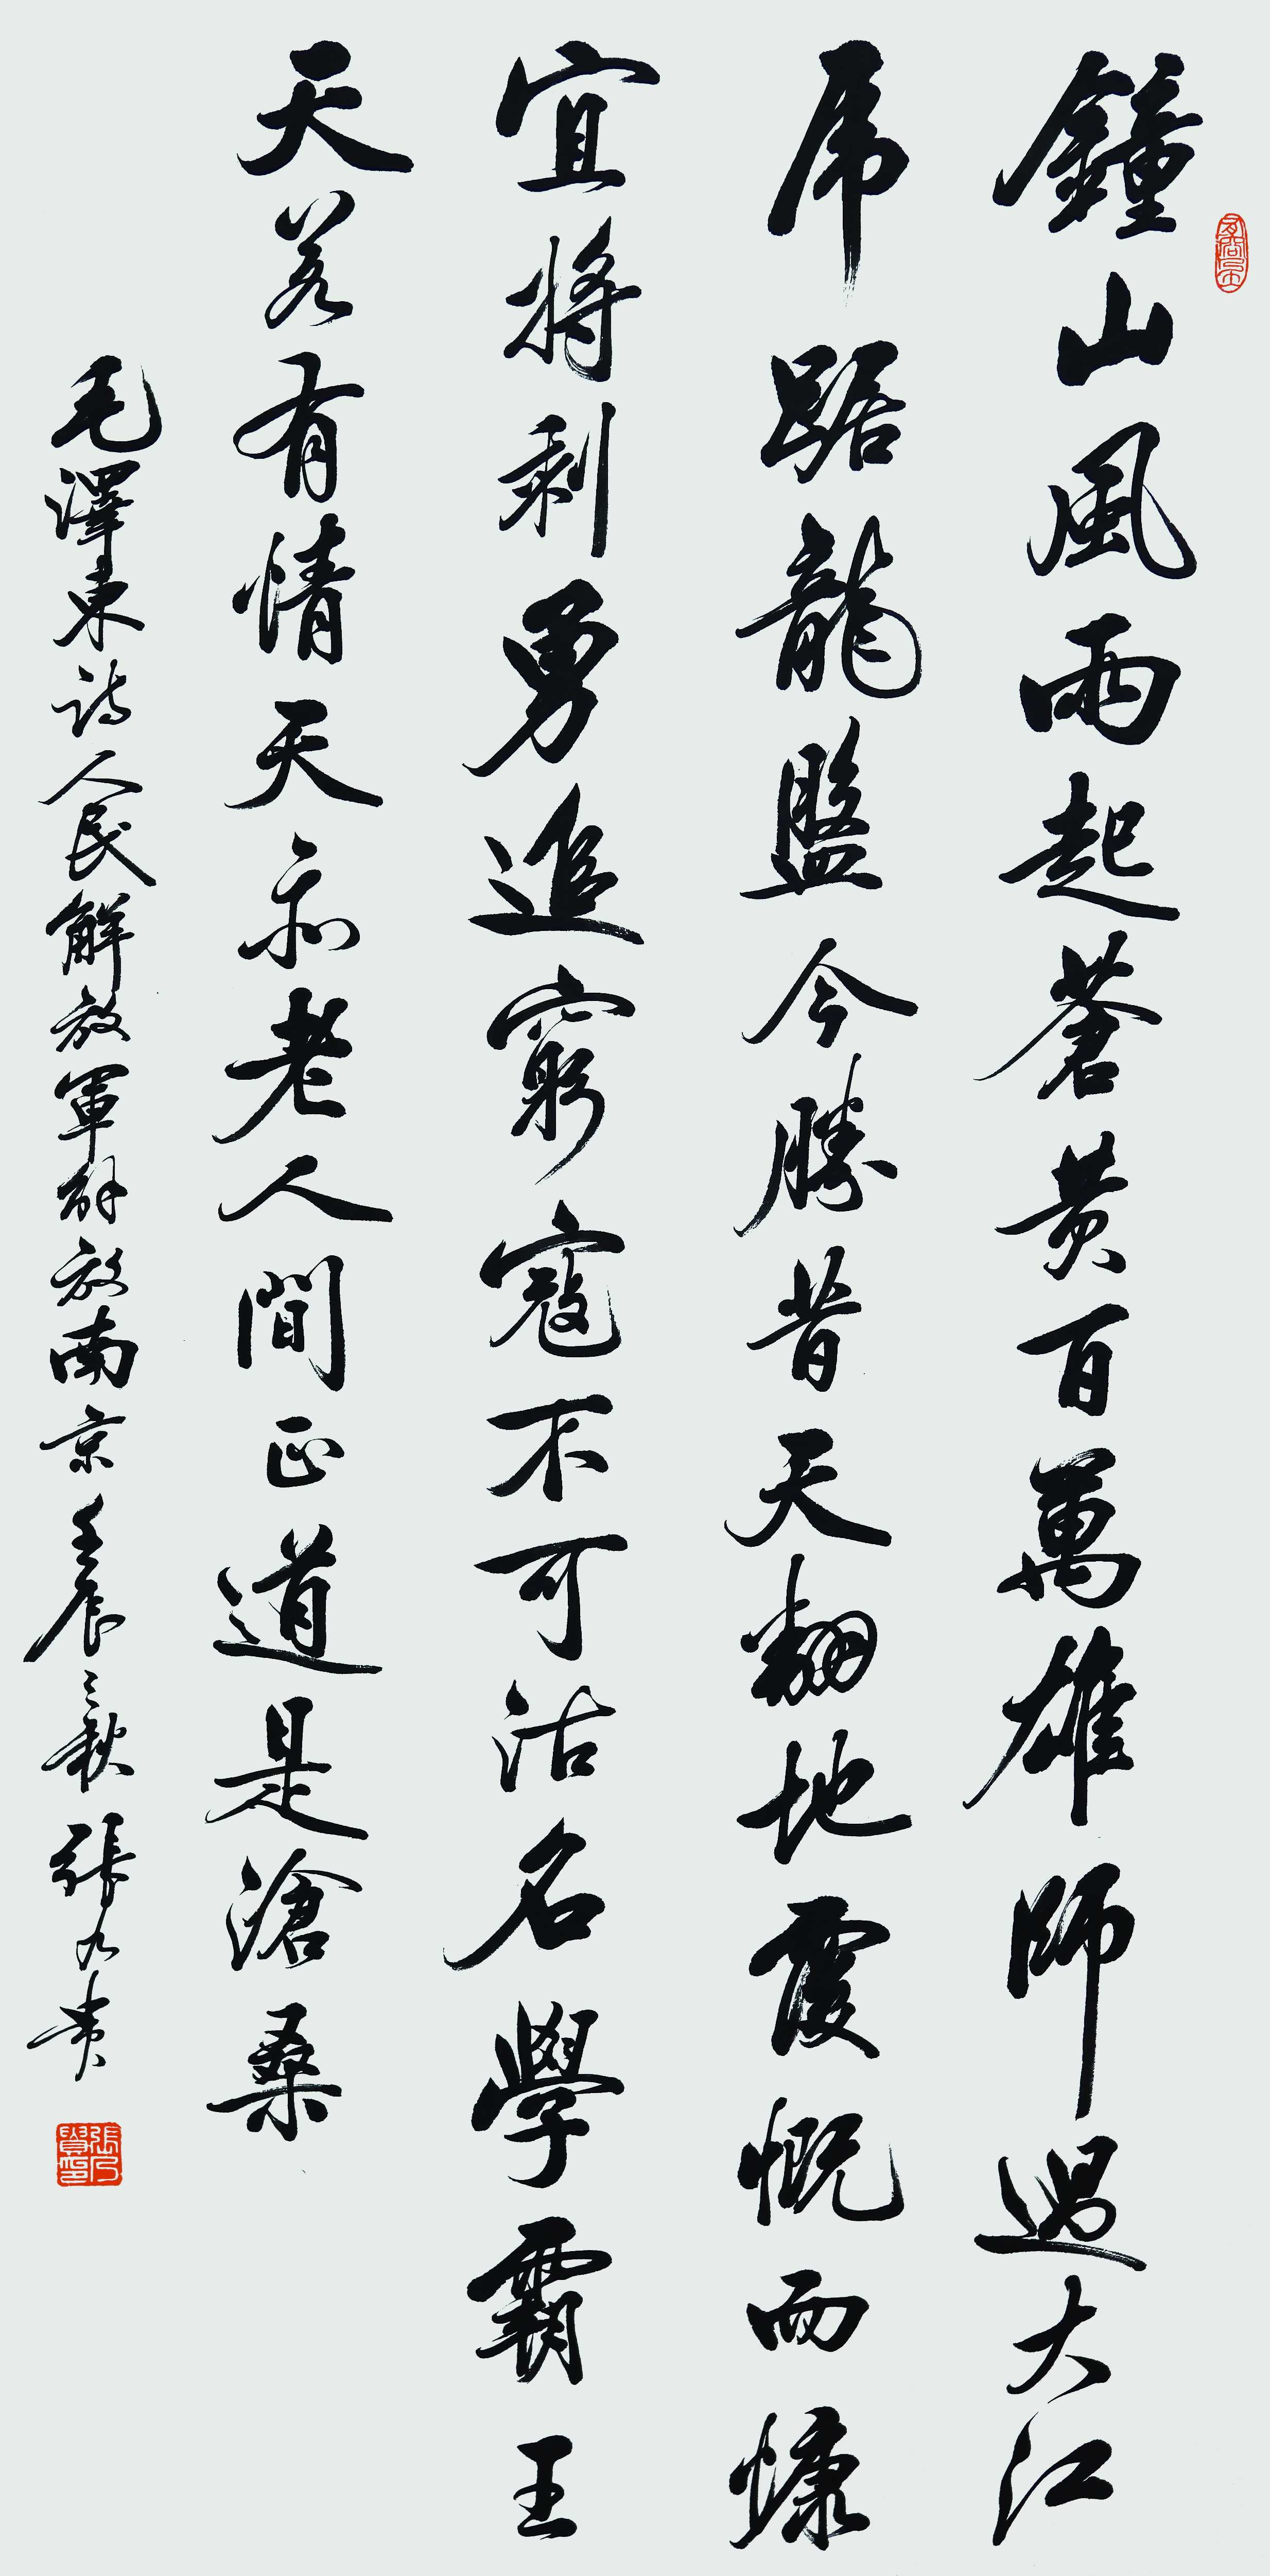 鐘山風雨起蒼黄百萬雄師過大江
虎踞龍盤今勝昔天翻地覆慨而慷
宜將剩勇追窮寇不可沽名學霸王
天若有情天亦老人間正道是滄桑
毛澤東詩人民解放軍解放南京壬辰之秋張九貴